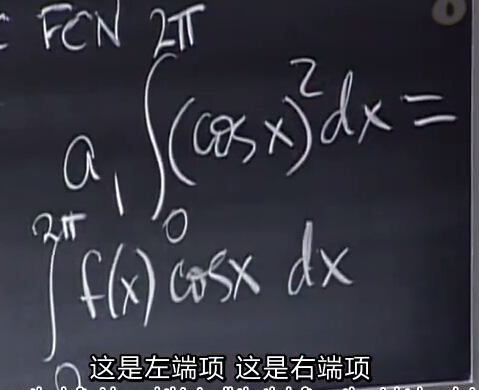 FCN
a₁ ∫₀^{2π} (cos x)² dx =
∫₀^{2π} f(x) cos x dx
这是左端项 这是右端项